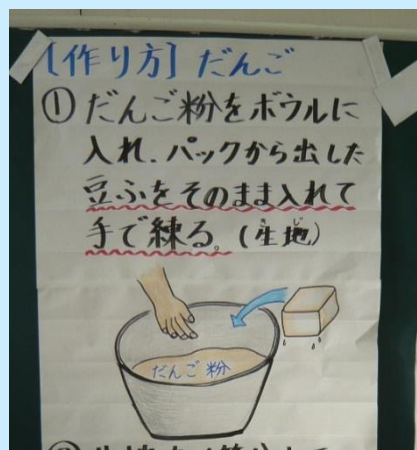 [作り方] だんご
① だんご粉をボウルに
入れ、パックから出した
豆ふをそのまま入れて
手で練る。(生地)
きじ
だんご粉